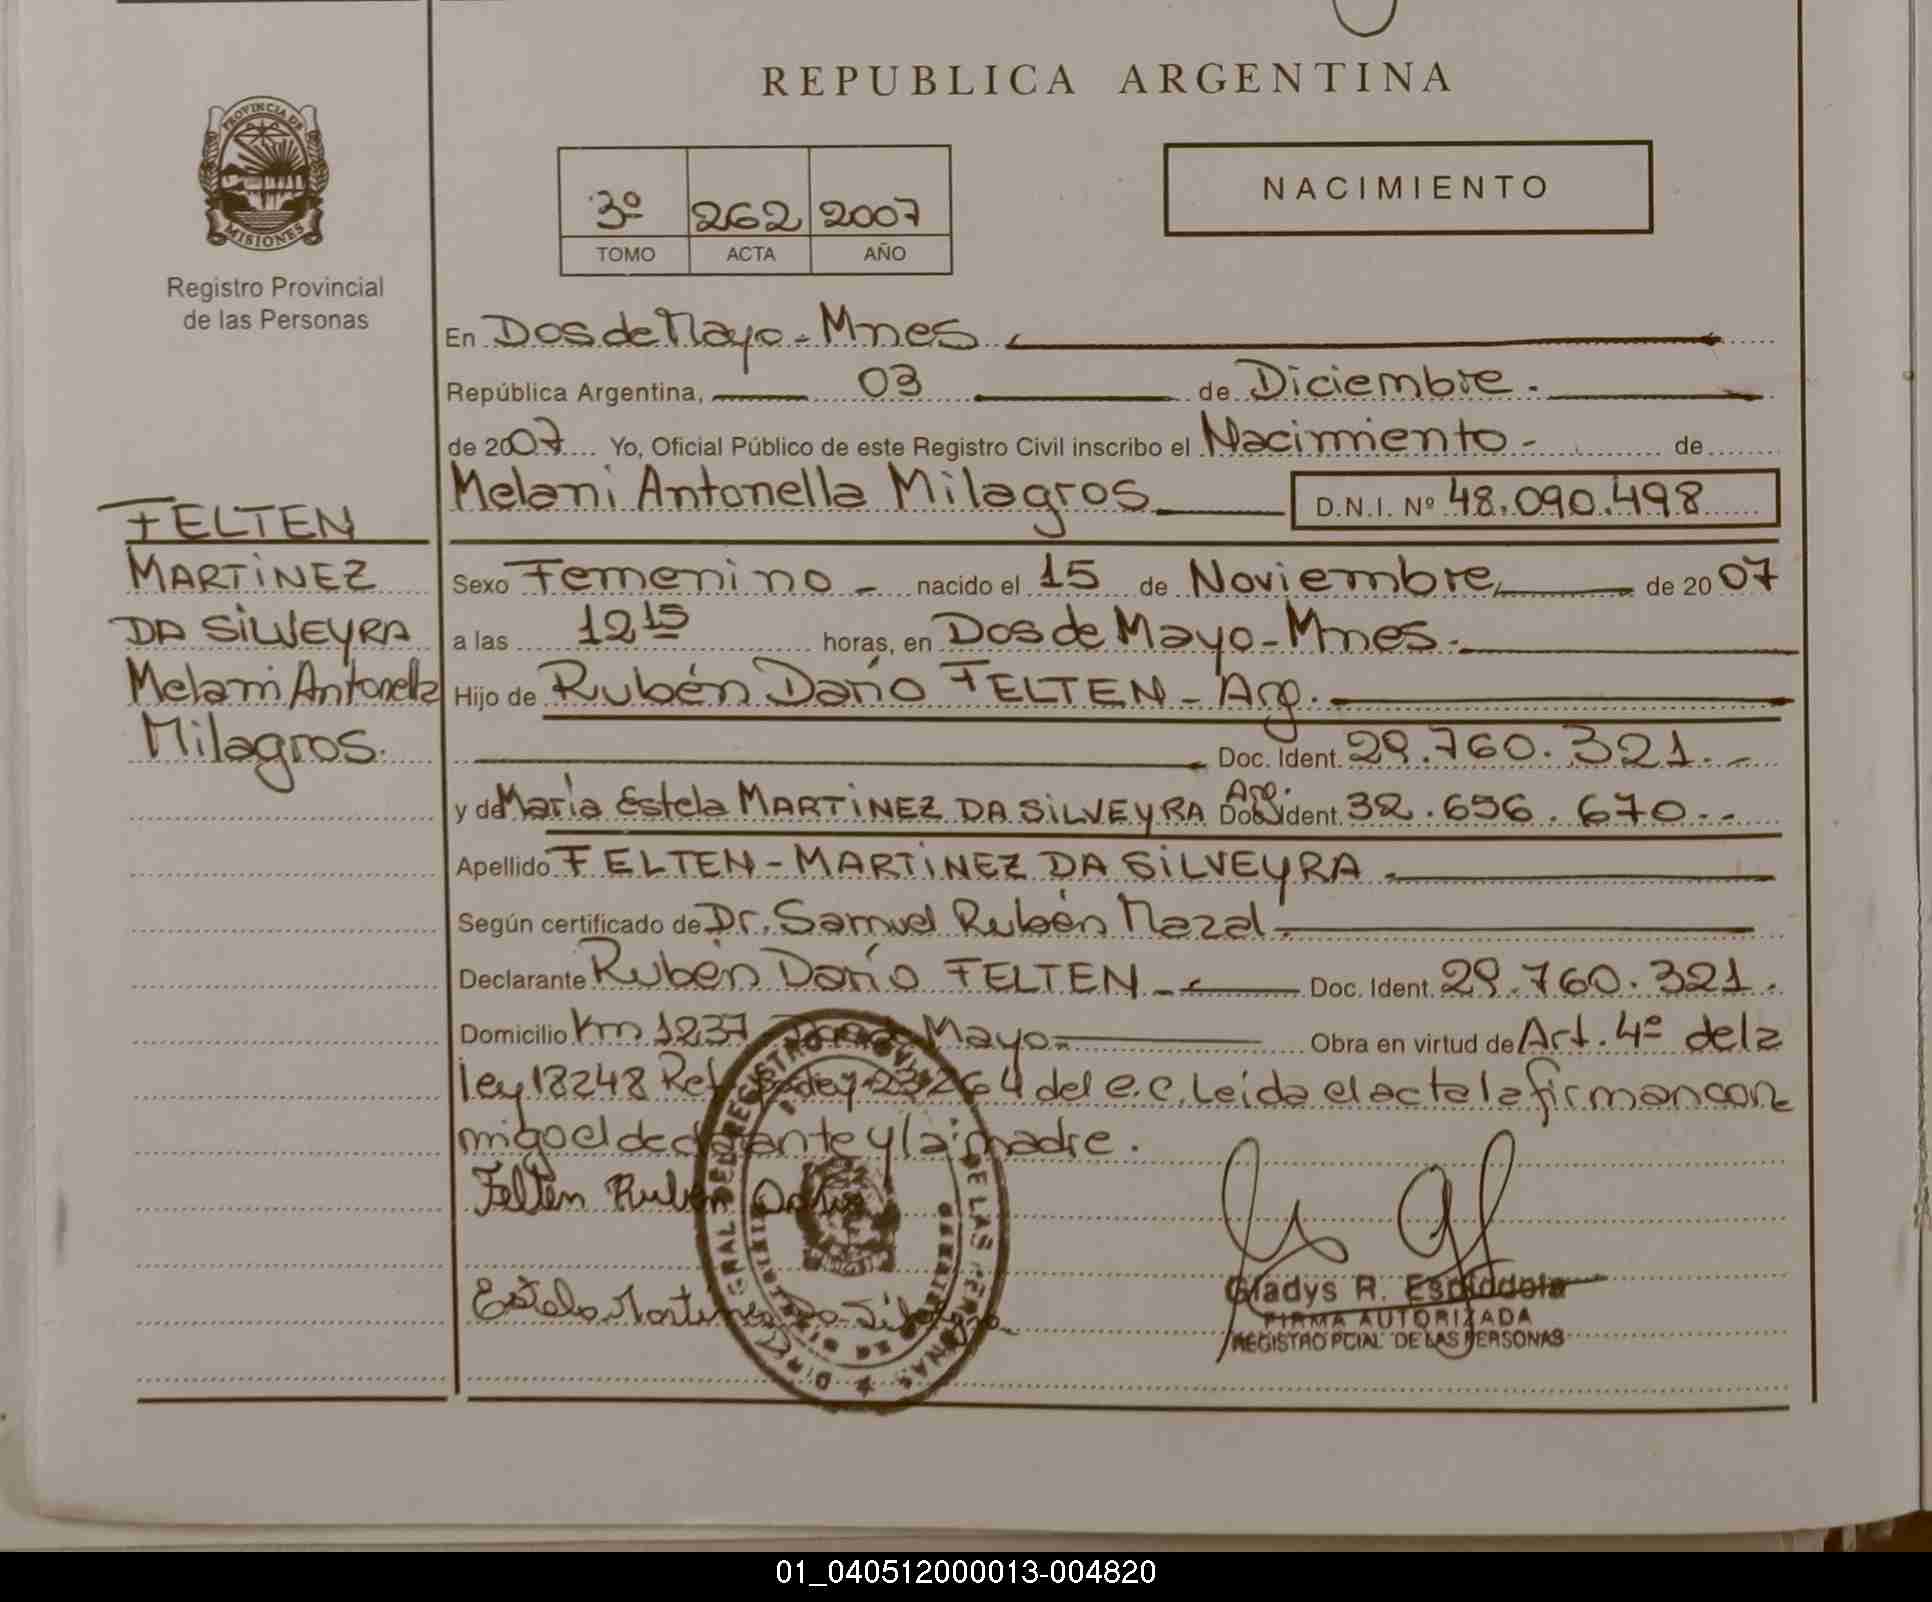 REPUBLICA ARGENTINA
PROVINCIA DE MISIONES
Registro Provincial
de las Personas
3º 262 2007
TOMO ACTA AÑO
NACIMIENTO
FELTEN
MARTINEZ
DA SILVEYRA
Melani Antonella
Milagros.
En Dos de Mayo - Mnes
República Argentina, 03 de Diciembre.
de 2007 Yo, Oficial Público de este Registro Civil inscribo el Nacimiento - de
Melani Antonella Milagros D.N.I. Nº 48.090.498
Sexo Femenino - nacido el 15 de Noviembre, de 2007
a las 12 15 horas, en Dos de Mayo - Mnes.
Hijo de Rubén Darío FELTEN - Arg.
Doc. Ident. 29.760.321.-
y de María Estela MARTINEZ DA SILVEYRA Arg. Doc. Ident. 32.696.670.-
Apellido FELTEN - MARTINEZ DA SILVEYRA.
Según certificado de Dr. Samuel Rubén Mazal.
Declarante Rubén Darío FELTEN - Doc. Ident. 29.760.321.
Domicilio Km 1237 Dos de Mayo - Obra en virtud de Art. 4º de la
ley 18248 Ref. ley 23264 del c.c. Leída el acta la firman con
migo el declarante y la madre.
Felten Ruben Dario
Estela Martinez Da Silveyra
Gladys R. Espíndola
FIRMA AUTORIZADA
REGISTRO PCIAL DE LAS PERSONAS
01_040512000013-004820